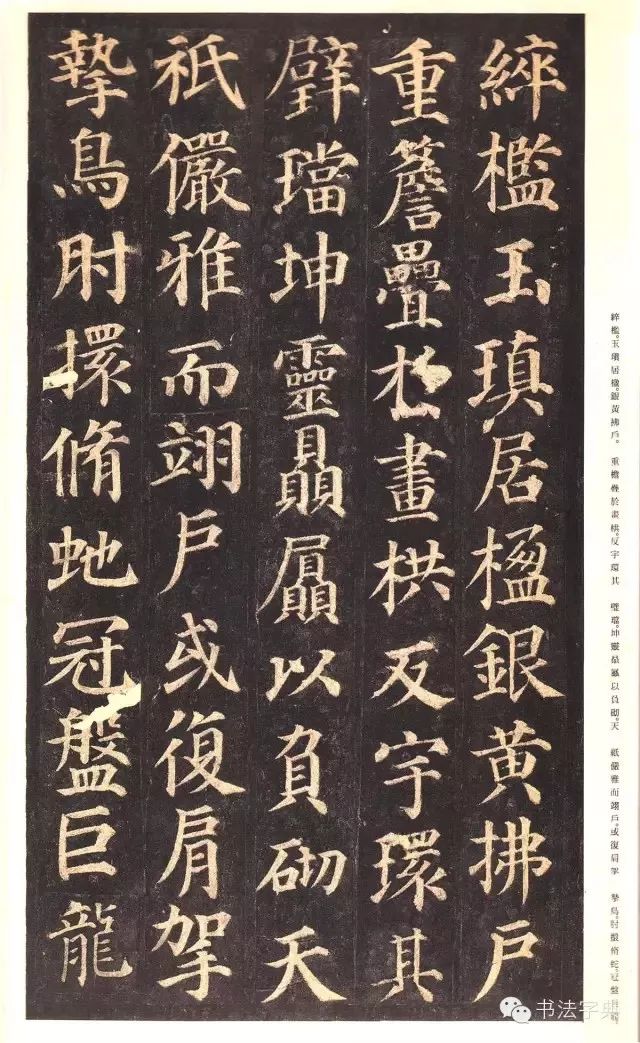 綷檻玉瑱居楹銀黃拂戶
重簷疊於畫栱反宇環其
璧璫坤靈贔屭以負砌天
祇儼雅而翊戶或復肩挐
摯鳥肘擐脩虵冠盤巨龍
綷檻。玉瑱居楹。銀黃拂戶。 重檐疊於畫栱。反宇環其 璧璫。坤靈贔屭以負砌。天 祇儼雅而翊戶。或復肩挐 摯鳥。肘擐脩蛇。冠盤巨龍
书法字典